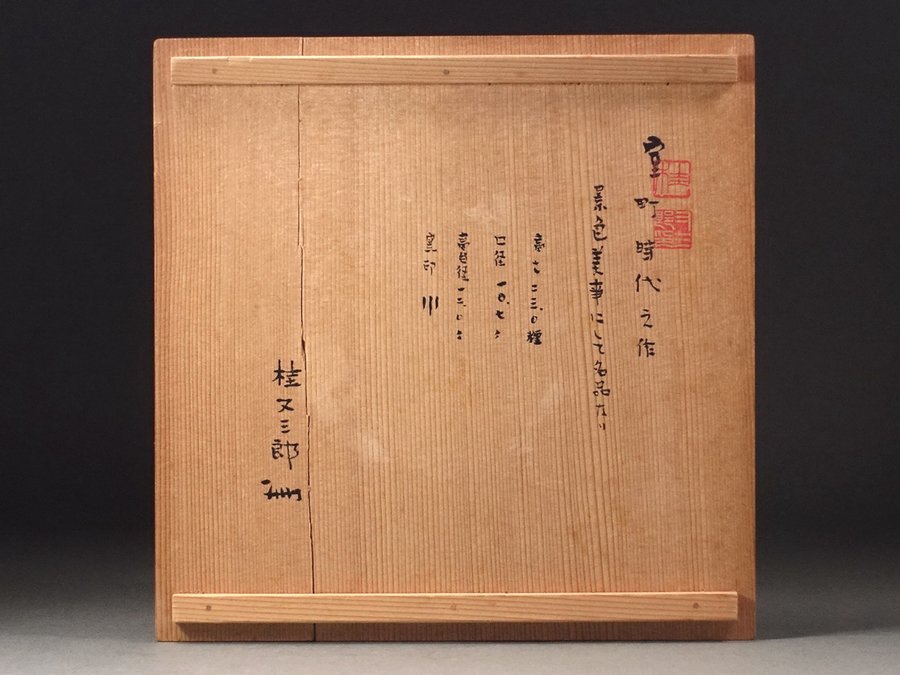 室町時代之作
景色美事にして名品なり
高サ二三.〇糎
口径一〇.七〃
高台径一三.〇〃
窯印 川
桂又三郎